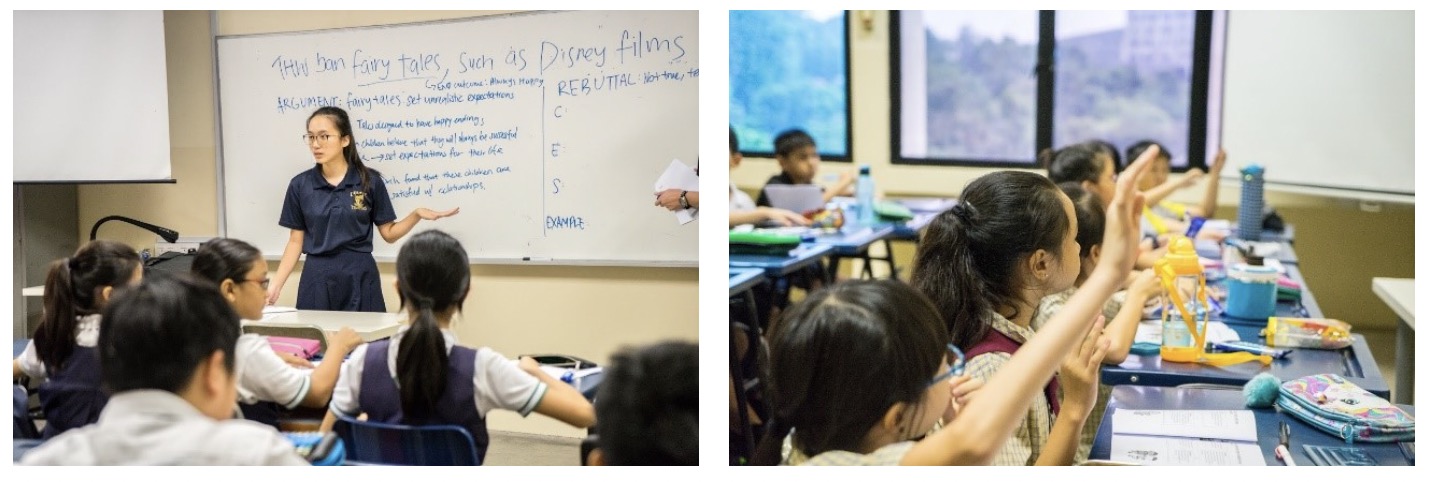 THW ban fairy tales, such as Disney films
outcome: Always Happy
ARGUMENT: fairy tales set unrealistic expectations
Tales designed to have happy endings
children believe that they will always be successful
→ set expectations for their life
found that these children are
satisfied w/ relationships.
REBUTTAL: Not true,
C:
E:
S:
EXAMPLE: